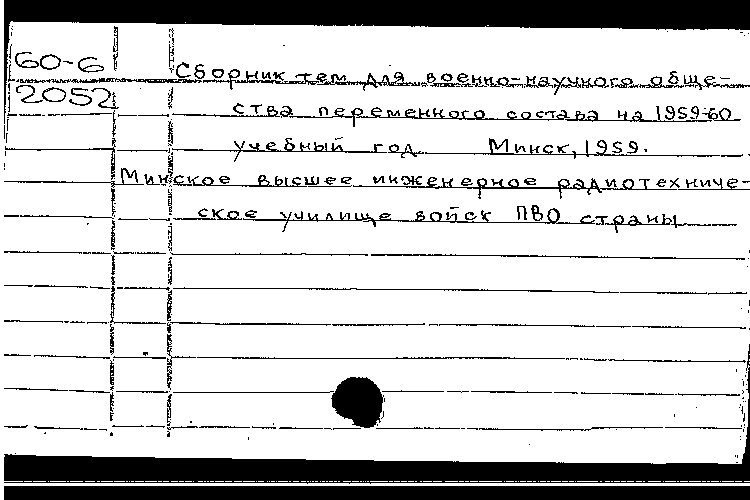 60-6
2052
Сборник тем для военно-научного обще-
ства переменного состава на 1959-60
учебный год. Минск, 1959.
Минское высшее инженерное радиотехниче-
ское училище войск ПВО страны